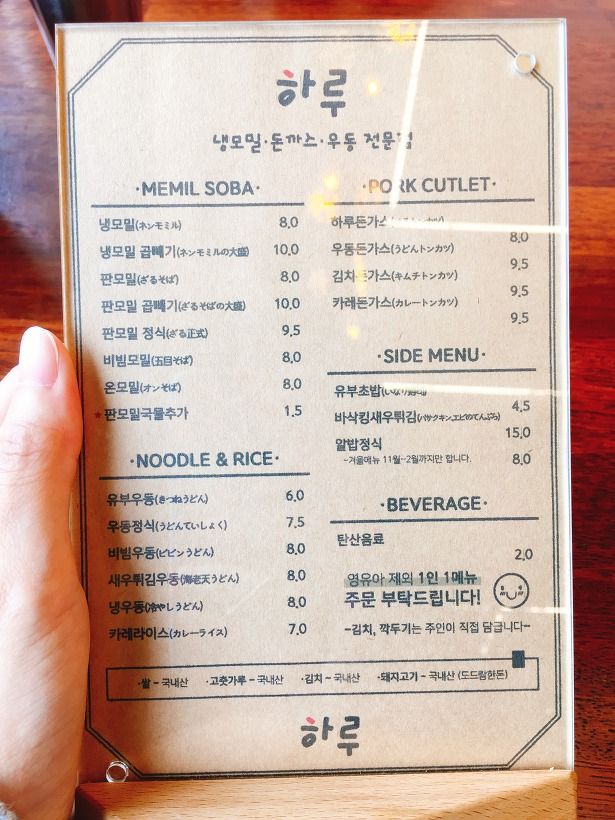 하루
냉모밀·돈까스·우동 전문점
·MEMIL SOBA·
냉모밀(ネンモミル) 8.0
냉모밀 곱빼기(ネンモミルの大盛) 10.0
판모밀(ざるそば) 8.0
판모밀 곱빼기(ざるそばの大盛) 10.0
판모밀 정식(ざる正式) 9.5
비빔모밀(五目そば) 8.0
온모밀(オンそば) 8.0
*판모밀국물추가 1.5
·NOODLE & RICE·
유부우동(きつねうどん) 6.0
우동정식(うどんていしょく) 7.5
비빔우동(ビビンうどん) 8.0
새우튀김우동(海老天うどん) 8.0
냉우동(冷やしうどん) 8.0
카레라이스(カレーライス) 7.0
·PORK CUTLET·
하루돈가스 8.0
우동돈가스(うどんトンカツ) 9.5
김치돈가스(キムチトンカツ) 9.5
카레돈가스(カレートンカツ) 9.5
·SIDE MENU·
유부초밥 4.5
바삭킹새우튀김(パサクキンエビのてんぷら) 15.0
알밥정식 8.0
-겨울메뉴 11월~2월까지만 합니다.
·BEVERAGE·
탄산음료 2.0
영유아 제외 1인 1메뉴
주문 부탁드립니다!
-김치, 깍두기는 주인이 직접 담급니다-
·쌀 - 국내산 ·고춧가루 - 국내산 ·김치 - 국내산 ·돼지고기 - 국내산 (도드람한돈)
하루